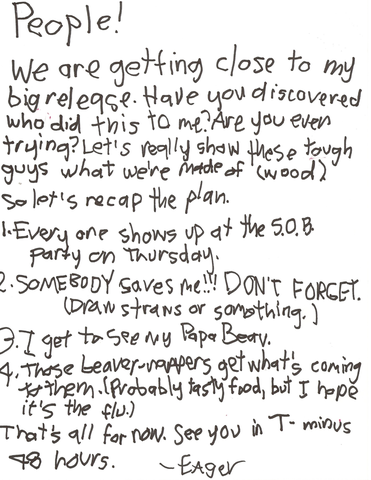 People!
We are getting close to my
big release. Have you discovered
who did this to me? Are you even
trying? Let's really show these tough
guys what we're made of (wood)
So let's recap the plan.
1. Every one shows up at the S.O.B.
party on Thursday.
2. SOMEBODY saves me!!! DON'T FORGET.
(Draw straws or something.)
3. I get to see my Papa Bear.
4. Those beaver-nappers get what's coming
to them. (Probably tasty food, but I hope
it's the flu.)
That's all for now. See you in T-minus
48 hours.
~EAGER